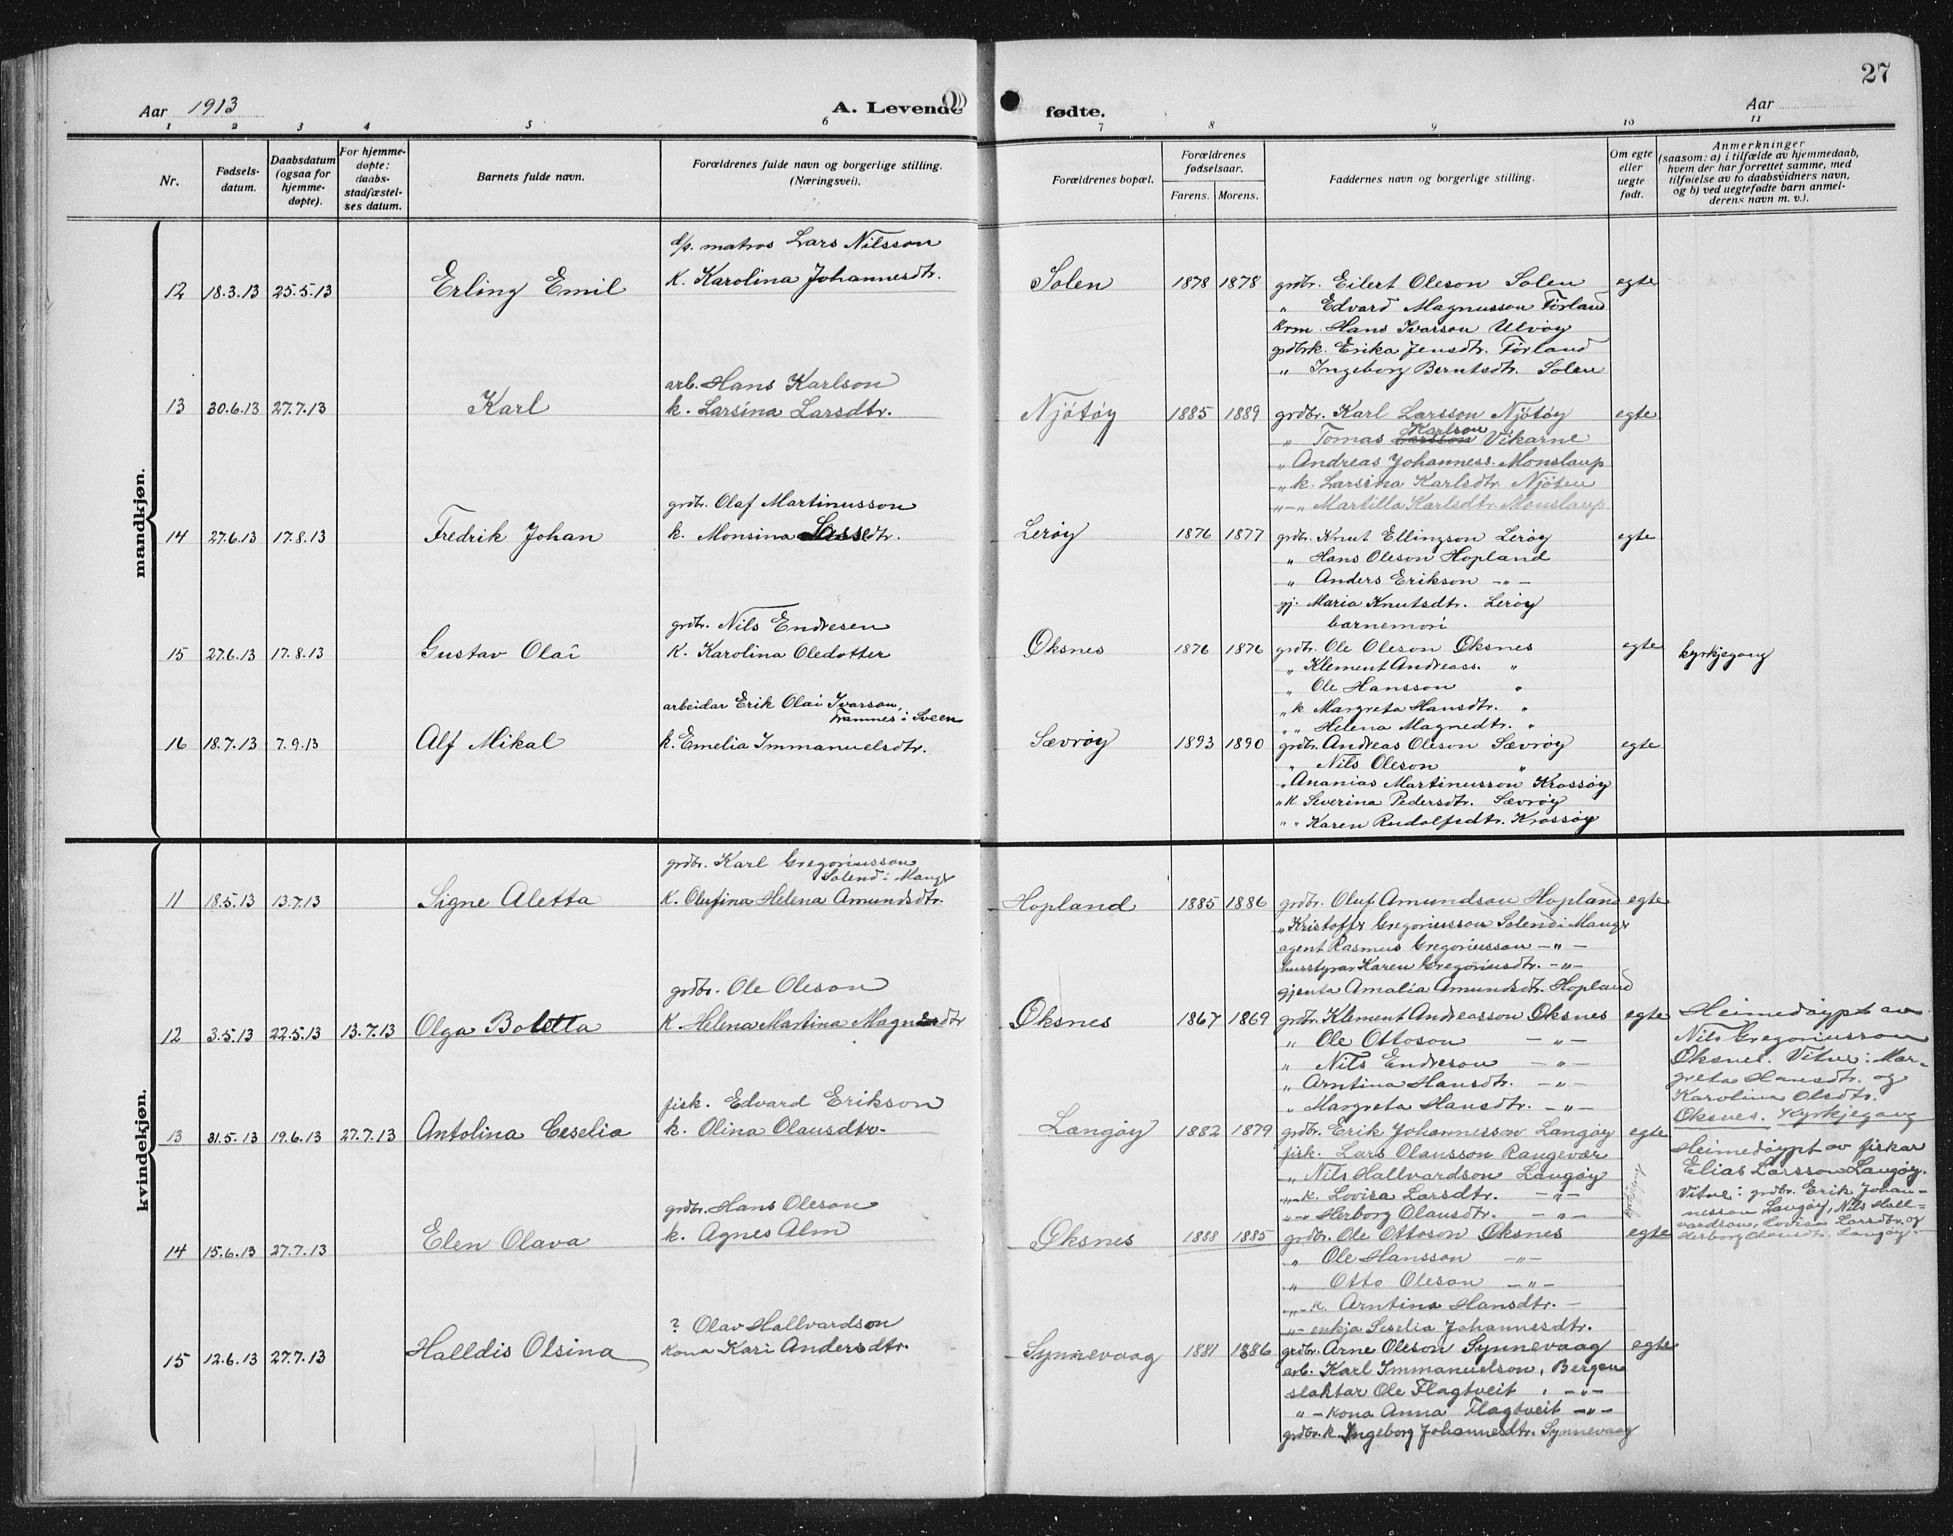 27
Aar 1913
A. Levende fødte.
Aar
1 2 3 4 5 6 7 8 9 10 11
Nr.
Fødsels-
datum.
Daabsdatum
(ogsaa for
hjemme-
døpte).
For hjemme-
døpte:
daabs-
stadfæstel-
ses datum.
Barnets fulde navn.
Forældrenes fulde navn og borgerlige stilling.
(Næringsvei).
Forældrenes bopæl.
Forældrenes
fødselsaar.
Farens. Morens.
Faddernes navn og borgerlige stilling.
Om egte
eller
uegte
født.
Anmerkninger
(saasom: a) i tilfælde av hjemmedaab,
hvem der har forrettet samme, med
tilføielse av to daabsvidners navn,
og b) ved uegtefødte barn anmel-
derens navn m. v.).
mandkjøn.
d/s. matros Lars Nilsson
k. Karolina Johannesdtr.
12 18.3.13 25.5.13 Erling Emil Solen 1878 1878 grdbr. Eilert Oleson Solen egte
„ Edvard Magnusson Førland
krm. Hans Ivarson Ulvøy
grdbrk. Erika Jensdtr. Førland
„ Ingeborg Berntsdtr. Solen
arb. Hans Karlson
k. Larsina Larsdtr.
13 30.6.13 27.7.13 Karl Njøtøy 1885 1889 grdbr. Karl Larsson Njøtøy egte
„ Tomas Larsson Karlson Vikarne
„ Andreas Johanness. Monslaup
„ k. Larsina Karlsdtr. Njøten
„ - „ Martilla Karlsdtr. Monslaup
grdbr. Olaf Martinusson
k. Monsina dtr.
14 27.6.13 17.8.13 Fredrik Johan Lerøy 1876 1877 grdbr. Knut Ellingson Lerøy egte
„ Hans Oleson Hopland
„ Anders Erikson - „ -
gj. Maria Knutsdtr. Lerøy
barnemori
grdbr. Nils Endresen
k. Karolina Oledotter
15 27.6.13 17.8.13 Gustav Olai Øksnes 1876 1876 grdbr. Ole Oleson Øksnes egte kyrkjegang
„ Klement Andreass. „
„ Ole Hansson „
„ k Margreta Hansdtr. „
„ „ Helena Magnedtr. „
arbeidar Erik Olai Ivarson,
Framnes i Sveen
k. Emelia Immanuelsdtr.
16 18.7.13 7.9.13 Alf Mikal Sævrøy 1893 1890 grdbr. Andreas Oleson Sævrøy egte
„ Nils Oleson „
„ Ananias Martinusson Krossøy
„ k Severina Pedersdtr. Sævrøy
„ „ Karen Rudolfsdtr. Krossøy
kvindekjøn.
grdbr. Karl Gregoriusson
Solend i Manger
k. Olufina Helena Amundsdtr.
11 18.5.13 13.7.13 Signe Aletta Hopland 1885 1886 grdbr. Oluf Amundson Hopland egte
„ Kristoffr Gregoriusson Solend i Mangr
agent Rasmus Gregoriusson - „ -
husstyrar Karen Gregoriusdtr. - „ -
gjenta Amalia Amundsdtr. Hopland
grdbr. Ole Oleson
k. Helena Martina Magnesdtr
12 3.5.13 22.5.13 13.7.13 Olga Boletta Øksnes 1867 1869 grdbr. Klement Andreasson Øksnes egte
„ Ole Ottoson - „ -
„ Nils Endreson - „ -
„ Arntina Hansdtr. - „ -
„ Margreta Hansdtr. - „ -
Heimedøypt av
Nils Gregoriusson
Øksnes. Vitne: Mar-
greta Hansdtr. og
Karolina Olsdtr.
Øksnes. Kyrkjegang
fisk. Edvard Erikson
k. Olina Olausdtr.
13 31.5.13 19.6.13 27.7.13 Antolina Ceselia Langøy 1882 1879 grdbr. Erik Johannesson Langøy egte
fisk. Lars Olausson Rangevær
„ Nils Hallvardson Langøy
„ - k. Lovisa Larsdtr. - „ -
„ - „ Herborg Olausdtr. - „ -
Heimedøypt av fiskar
Elias Larsson Langøy.
Vitne: grdbr. Erik Johan-
nesson Langøy, Nils Hall-
vardson, Lovisa Larsdtr. og
Herborg Olausdtr. Langøy.
grdbr. Hans Oleson
k. Agnes Alm
14 15.6.13 27.7.13 Elen Olava Øksnes 1888 1885 grdbr. Ole Ottoson Øksnes egte
„ Ole Hansson - „ -
„ Otto Oleson - „ -
„ - k. Arntina Hansdtr. -
„ - enkja Seselia Johannesdtr.
? Olav Hallvardson
Kona Kari Andersdtr.
15 12.6.13 27.7.13 Halldis Olsina Synnevaag 1881 1886 grdbr. Arne Oleson Synnevaag egte
arb. Karl Immanuelson, Bergen
slaktar Ole Flagtveit, - „ -
„ - Kona Anna Flagtveit - „ -
grdbr. k Ingeborg Johannesdtr. Synnevaag